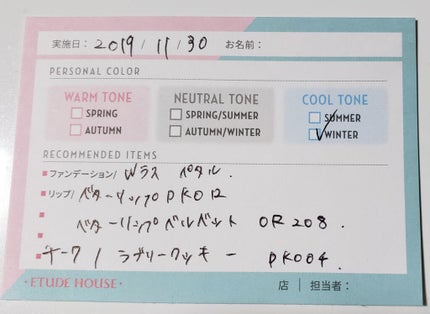 実施日： 2019 / 11 / 30 お名前：
PERSONAL COLOR
WARM TONE NEUTRAL TONE COOL TONE
SPRING SPRING/SUMMER SUMMER
AUTUMN AUTUMN/WINTER WINTER
RECOMMENDED ITEMS
ファンデーション/ Wラス ペタル.
リップ/ ベターリップ PK012
ベターリップベルベット OR208.
チーク / ラブリークッキー PK004.
ETUDE HOUSE 店 | 担当者：